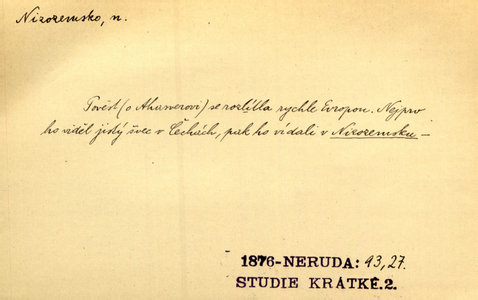 Nizozemsko, n.
Pověst (o Ahasverovi) se rozlítla rychle Evropou. Nejprv
ho viděl jistý švec v Čechách, pak ho vídali v Nizozemsku –
1876-NERUDA: 93,27.
STUDIE KRÁTKÉ.2.